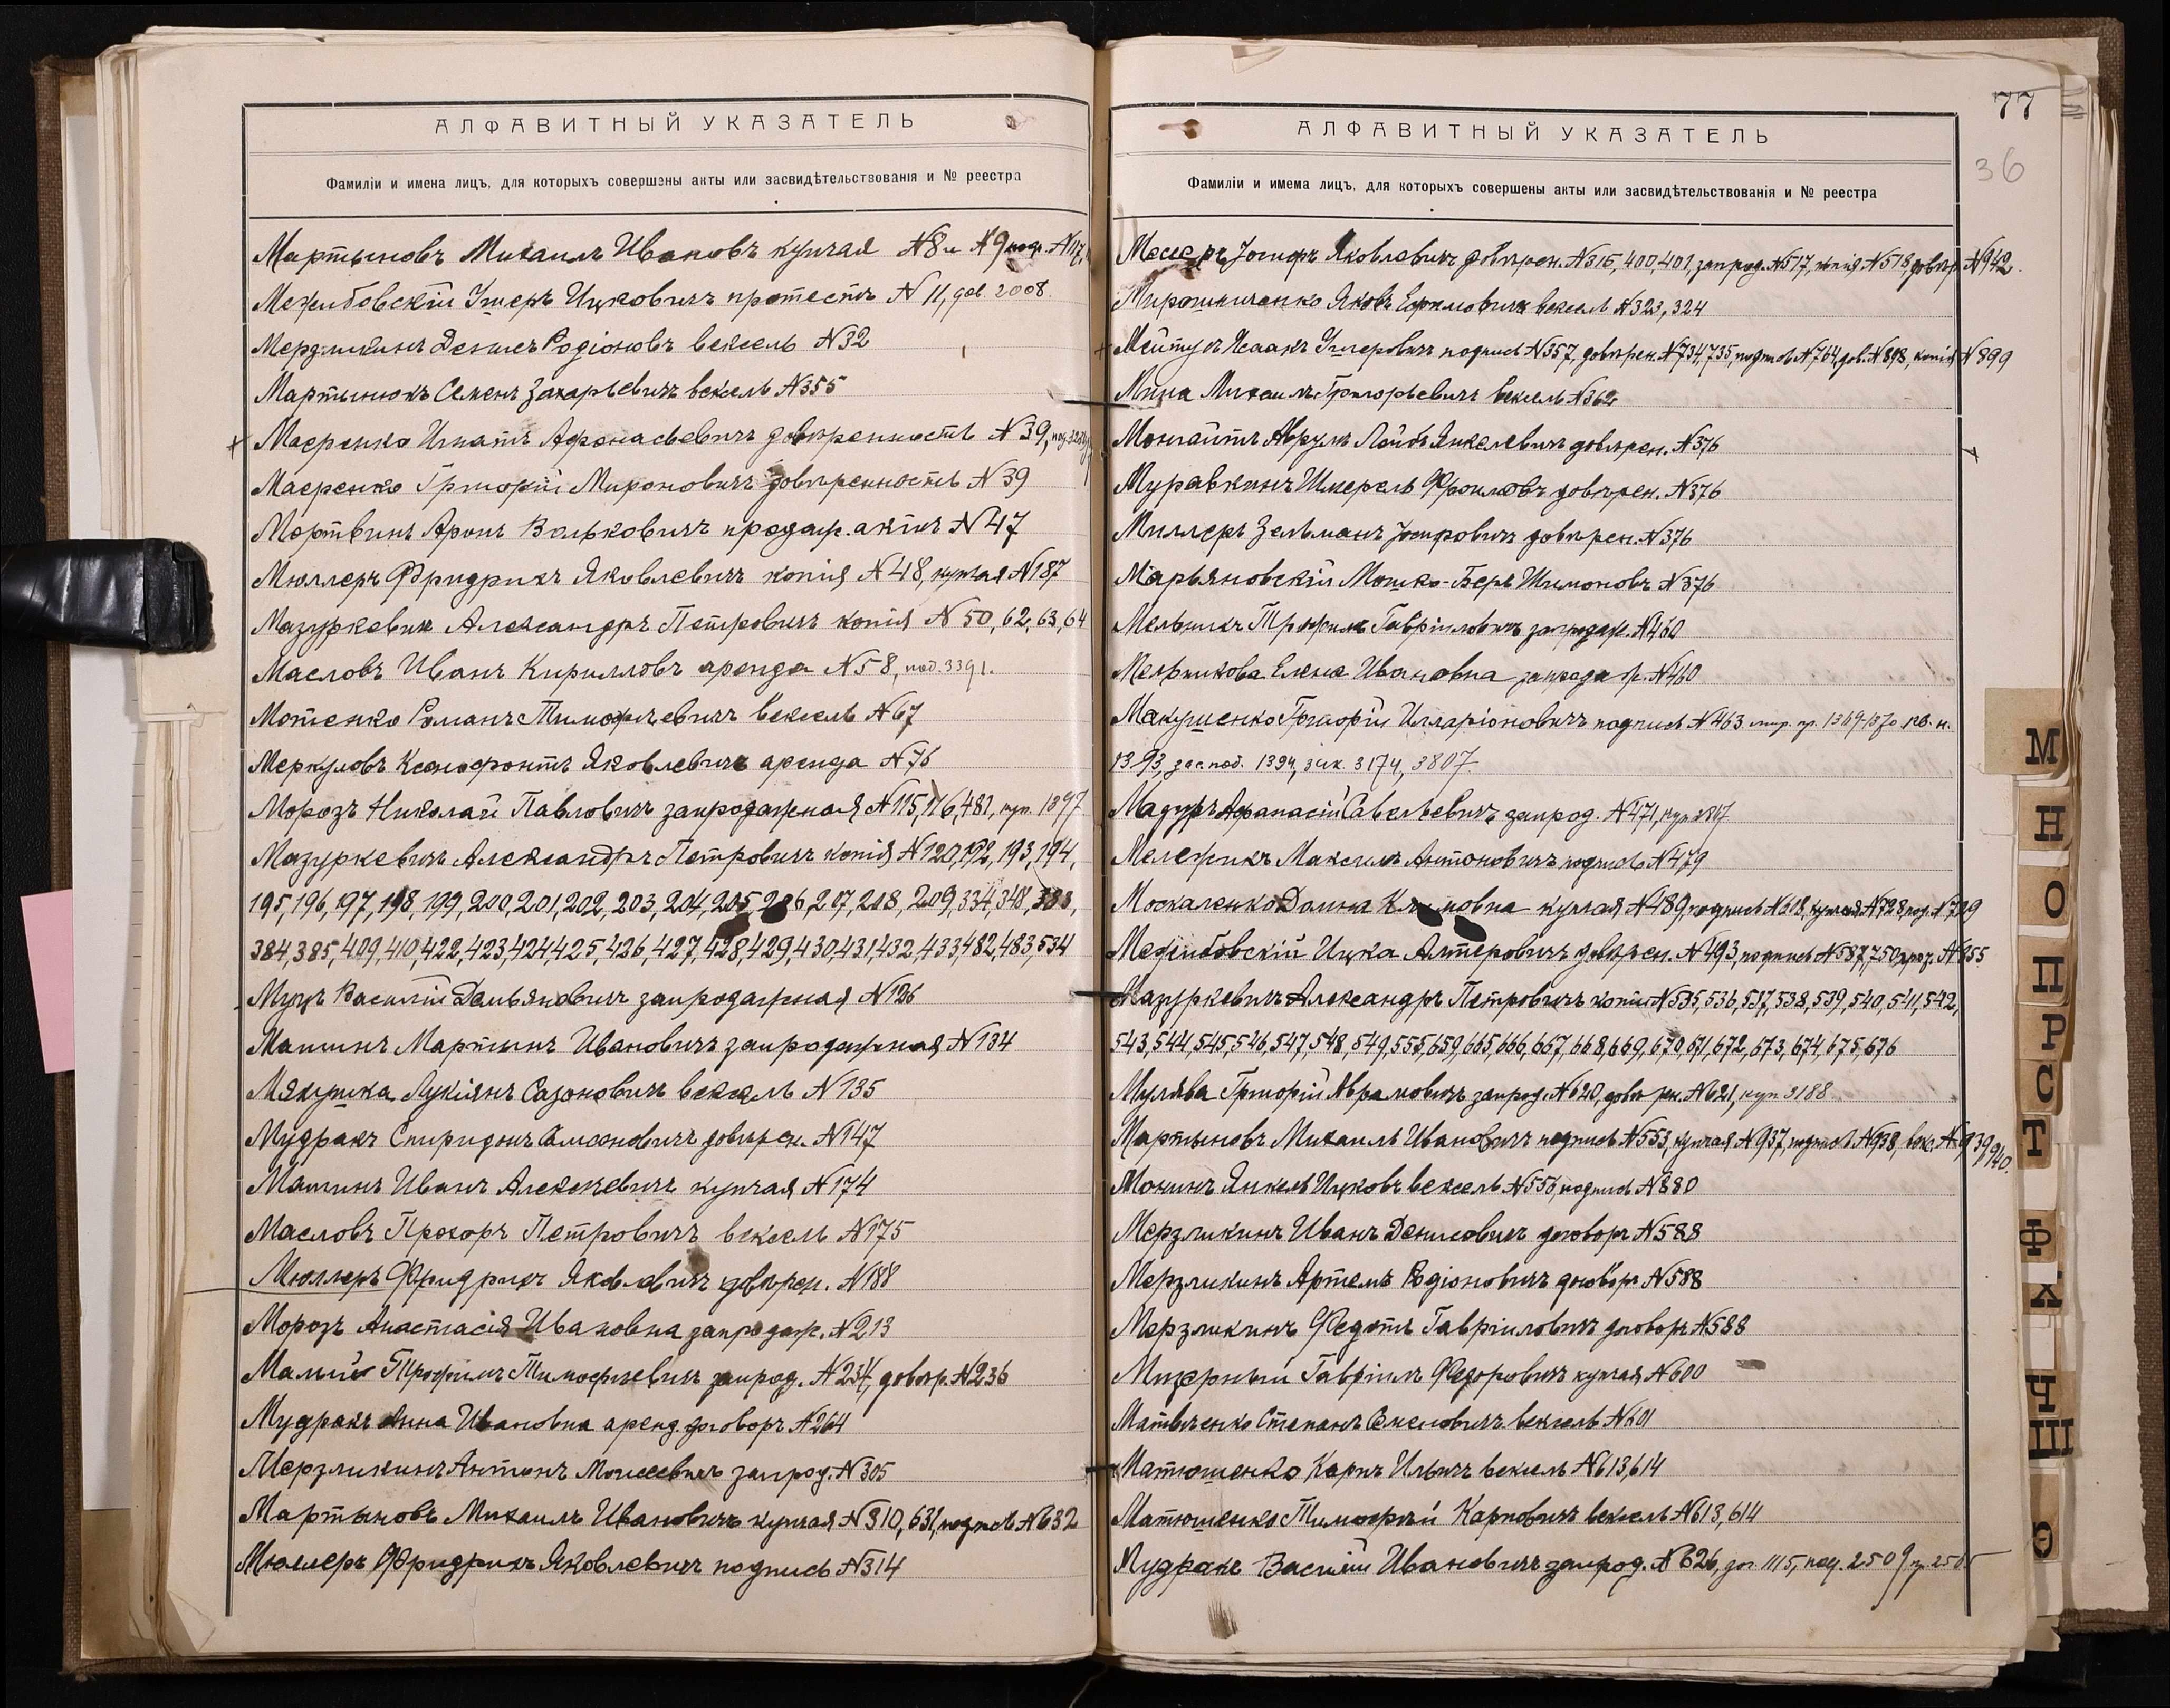 АЛФАВИТНЫЙ УКАЗАТЕЛЬ
Фамиліи и имена лицъ, для которыхъ совершены акты или засвидѣтельствованія и № реестра
Мартыновъ Михаилъ Ивановъ купчая №8 и №9
Межибовскій Ицковичъ протестъ №11, дов. 2008
Родіоновъ вексель №32
Мартынюкъ Семенъ Захарьевичъ вексель №355
Маеренко Игнатъ Афанасьевичъ довѣренность №39,
Маеренко Григорій Мироновичъ довѣренность №39
Мортвинъ Аронъ Вольковичъ продаж. актъ №47
Мюллеръ Фридрихъ Яковлевичъ копія №48, купчая №187
Мазуркевичъ Александръ Петровичъ копія №50, 62, 63, 64
Масловъ Иванъ Кирилловъ аренда №58, под. 3391.
Мотенко Романъ Тимофѣевичъ вексель №67
Меркуловъ Ксенофонтъ Яковлевичъ аренда №76
Морозъ Николай Павловичъ запродажная №115, 116, 481, куп. 1897
Мазуркевичъ Александръ Петровичъ копія №120, 192, 193, 194,
195, 196, 197, 198, 199, 200, 201, 202, 203, 204, 205, 206, 207, 208, 209, 334, 348, 383,
384, 385, 409, 410, 422, 423, 424, 425, 426, 427, 428, 429, 430, 431, 432, 433, 482, 483, 534
Муцъ Василій Демьяновичъ запродажная №126
Машинъ Мартынъ Ивановичъ запродажная №134
Мякушка Лукіянъ Сазоновичъ вексель №135
Мудракъ Спиридонъ Самсоновичъ довѣрен. №147
Машинъ Иванъ Алексѣевичъ купчая №174
Масловъ Прохоръ Петровичъ вексель №175
Мюллеръ Фридрихъ Яковлевичъ довѣрен. №188
Морозъ Анастасія Ивановна запродаж. №213
Малый Трофимъ Тимофѣевичъ запрод. №234, довѣр. №236
Мудракъ Анна Ивановна аренд. договоръ №264
Мерзликинъ Антонъ Моисеевичъ запрод. №305
Мартыновъ Михаилъ Ивановичъ купчая №310, 631, подпись №632
Мюллеръ Фридрихъ Яковлевичъ подпись №314
77
36
АЛФАВИТНЫЙ УКАЗАТЕЛЬ
Фамиліи и имема лицъ, для которыхъ совершены акты или засвидѣтельствованія и № реестра
Іосифъ Яковлевичъ довѣрен. №315, 400, 401, запрод. №517, копія №518, довѣр. №942.
Мирошниченко Яковъ Ефимовичъ вексель №323, 324
Исаакъ подпись №357, довѣрен. №734, 735, подпись №764, дов. №898, копія №899
Мина Михаилъ Григорьевичъ вексель №362
Монгайтъ Аврумъ Лейбъ Янкелевичъ довѣрен. №376
Муравкинъ Шмерель Фроимовъ довѣрен. №376
Миллеръ Зельманъ Іосифовичъ довѣрен. №376
Марьяновскій Мошко-Беръ Шимоновъ №376
Мельникъ Трофимъ Гавріиловичъ запродаж. №460
Мельникова Елена Ивановна запродаж. №460
Макушенко Григорій Илларіоновичъ подпись №463 1369-1370
1393, зас. под. 1394, 3174, 3807.
Мадуръ Афанасій Савельевичъ запрод. №471, куп.
Мелешикъ Максимъ Антоновичъ подпись №479
Москаленко Домна Климовна купчая №489, подпись №618, купчая №728, под. №729
Меджибовскій Ицка Алтеровичъ довѣрен. №493, подпись №587, 750
Мазуркевичъ Александръ Петровичъ копіи №535, 536, 537, 538, 539, 540, 541, 542,
543, 544, 545, 546, 547, 548, 549, 555, 659, 665, 666, 667, 668, 669, 670, 671, 672, 673, 674, 675, 676
Мулява Григорій Абрамовичъ запрод. №620, довѣрен. №621, куп. 3188
Мартыновъ Михаилъ Ивановичъ подпись №553, купчая №937, подпись №938, век. №939, 940.
Монинъ Янкель Ицковъ вексель №556, подпись №880
Мерзликинъ Иванъ Денисовичъ договоръ №588
Мерзликинъ Артемъ Родіоновичъ договоръ №588
Мерзликинъ Федотъ Гавріиловичъ договоръ №588
Мизерный Гавріилъ Федоровичъ купчая №600
Матвѣенко Степанъ Семеновичъ вексель №601
Матюшенко Карпъ Ильичъ вексель №613, 614
Матюшенко Тимофѣй Карповичъ вексель №613, 614
Мудракъ Василій Ивановичъ запрод. №626, дог. 1115, под. 2509
М
Н
О
П
Р
С
Т
Ф
Х
Ч
Ш
Э